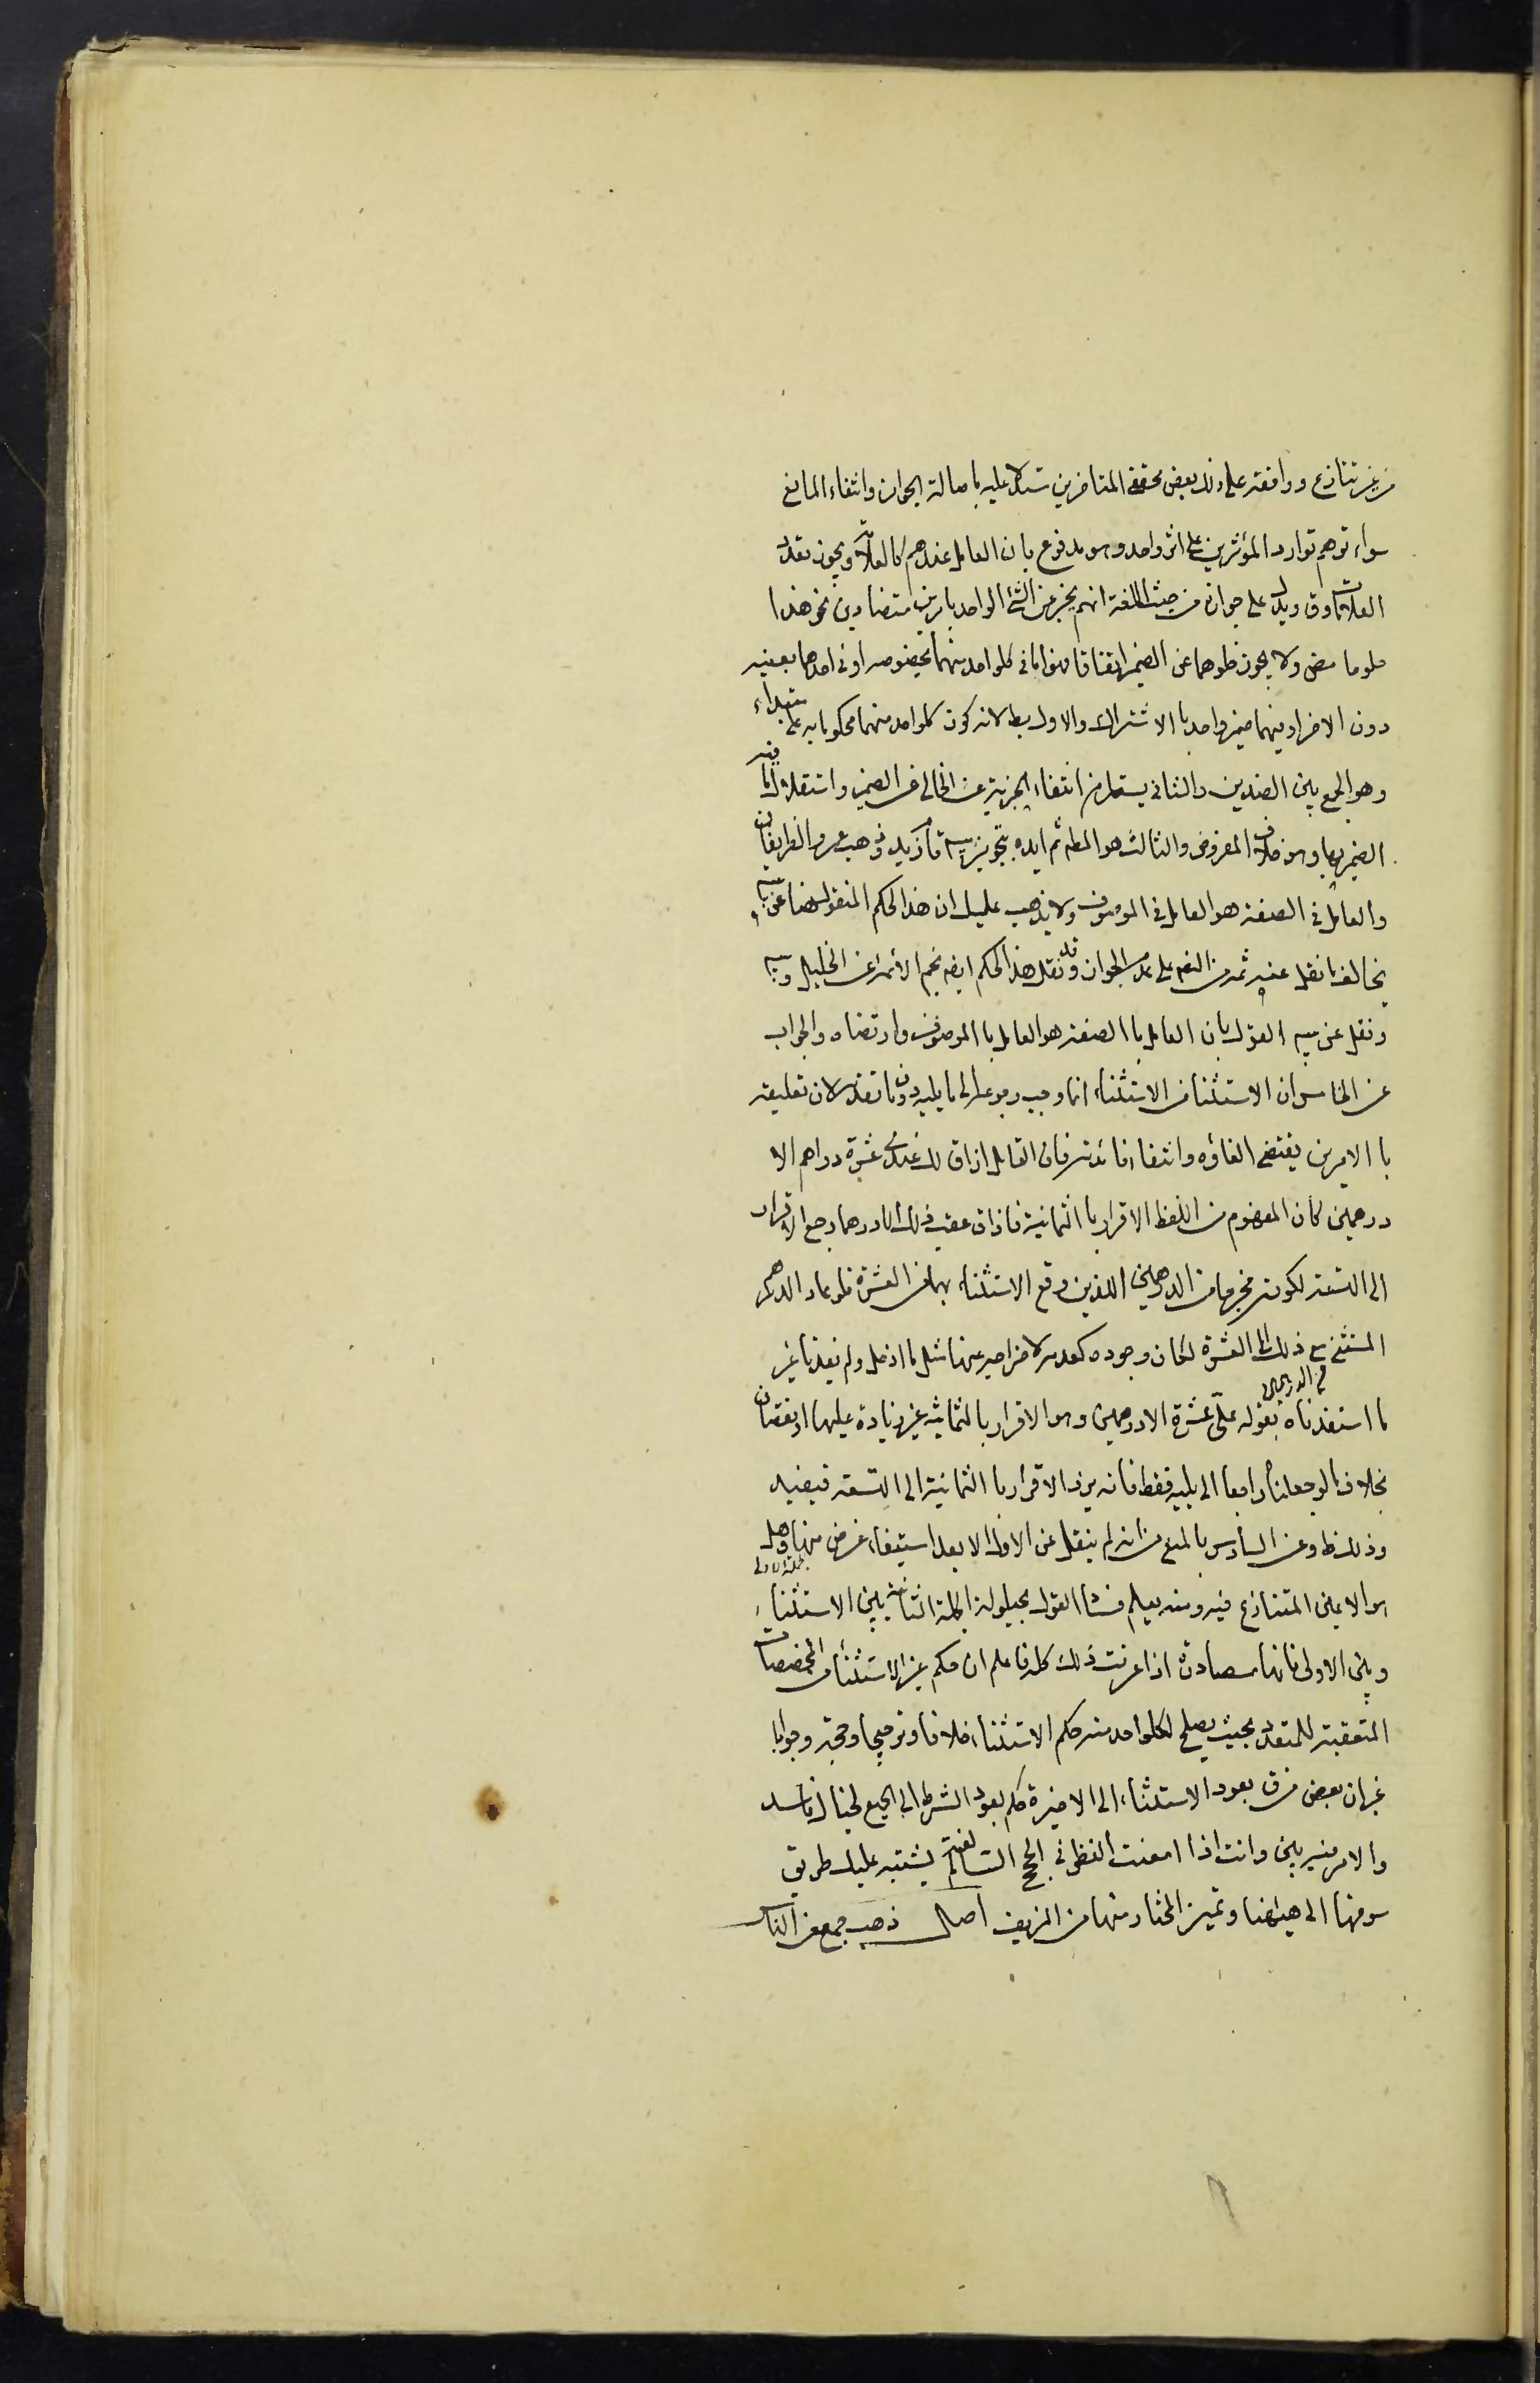 من غير تنازع ووافقه على ذلك بعض محققي المتاخرين مستدلا عليه باصالة الجواز وانتفاء المانع
سواء توهم توارد المؤثرين على اثر واحد وهو مدفوع بان العامل عندهم كالعلامة ويجوز تعدد
العلامات وق ويدل على جوازه من حيث اللغة انهم يخبر عن الشئ الواحد بامرين متضادين نحو هذا
حلو حامض ولا يجوز خلوهما عن الضمير اتفاقا فهو اما في كلواحد منهما بخصوصه او في احدهما بعينه
دون الاخر او فيهما ضمير واحد با الاشتراك والاول بط لانه كون كلواحد منهما محكوما به على مبتداء
وهو الجمع بين الضدين والثاني يستلزم انتفاء الخبرية عن الخالي عن الضمير واستقلال ما فيه
الضمير بها وهو خلاف المفروض والثالث هو المط ثم ايده بتجويز سيبويه قام زيد وذهب عمرو الظريفان
والعامل في الصفة هو العامل في الموصوف ولا يذهب عليك ان هذا الحكم المنقول هنا عن سيبويه
يخالف ما نقل عنه ثمه من النص على عدم الجواز وقد نقل هذا الحكم ايضا نجم الأئمة عن الخليل وسيبويه
ونقل عن سيبويه القول بان العامل با الصفة هو العامل با الموصوف وارتضاه والجواب
عن الخامس ان الاستثناء من الاستثناء انما وجب رجوعه الى ما يليه دون ما تقدمه لان تعليقه
با الامرين يقتضي الغاؤه وانتفاء فائدته فان القائل اذا ق لك عندي عشرة دراهم الا
درهمين كان المفهوم من اللفظ الاقرار با الثمانية فاذا ق عقيب ذلك الا درهما رجع الاقرار
الى التسعة لكونه مخرجا من الدرهمين اللذين وقع الاستثناء بهما من العشرة فلو عاد الدرهم
المستثنى مع ذلك الى العشرة لكان وجوده كعدمه لاخراجه عنها مثل ما ادخل ولم يفدنا غير
ما استفدناه بقوله علي عشرة الا درهمين وهو الاقرار بالثمانية من غير زيادة عليها او نقصان
من الدرهمين
بخلاف ما لو جعلناه راجعا الى ما يليه فقط فانه يرد الاقرار با الثمانية الى التسعة فيفيد
وذلك ظ وعن السادس بالمنع من انه لم ينتقل عن الاولى الا بعد استيفاء غرض منها وهل
هو الا عين المتنازع فيه ومنه يعلم فساد القول بحيلولة الجملة الثانية بين الاستثناء
وبين الاولى فانها مصادرة اذا عرفت ذلك كله فاعلم ان حكم غير الاستثناء من المخصصات
المتعقبة للمتعدد بحيث يصلح لكلواحد منه حكم الاستثناء خلافا وترجيحا وحجة وجوابا
غير ان بعض من ق بعود الاستثناء الى الاخيرة حكم بعود الشرط الى الجميع لخيال فاسد
والامر فيه بين وانت اذا امعنت النظر في الحجج السالفة لم يشتبه عليك طريق
سوقها الى هيهنا وتميز المختار منها من المزيف اصل ذهب جمع من الناس